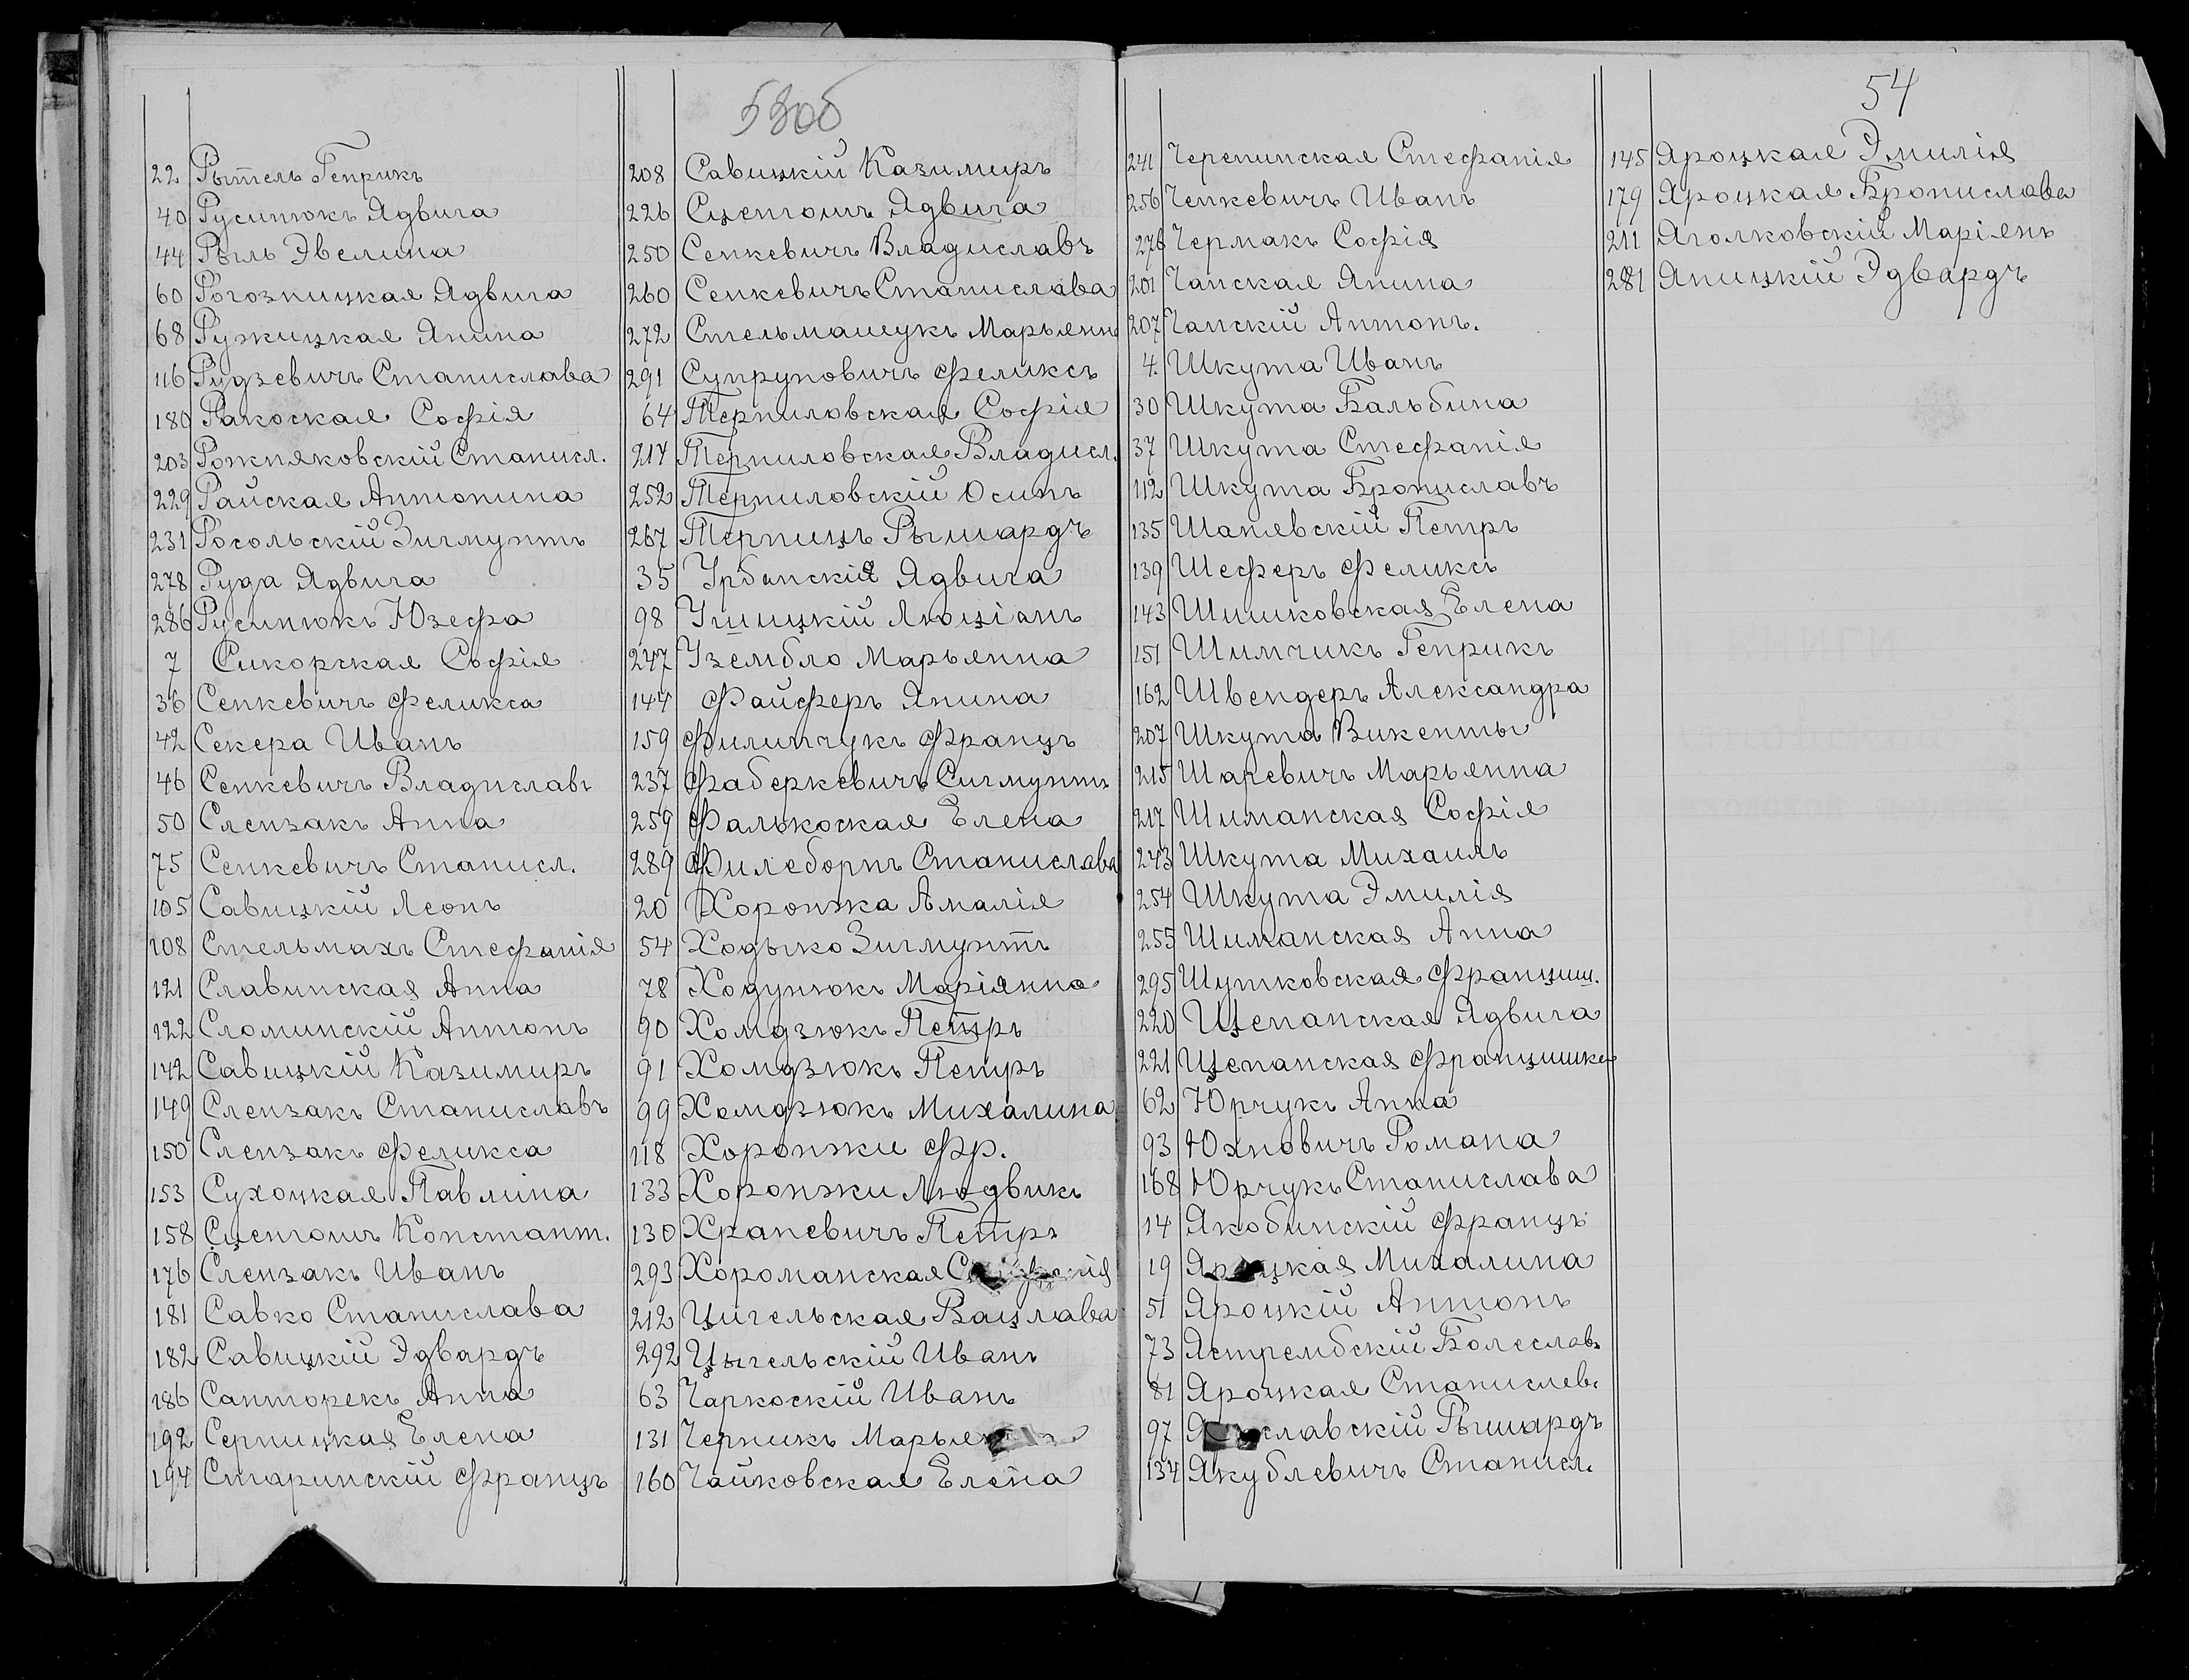 53об
22 Рытель Генрикъ
40 Русинюкъ Ядвига
44 Рыль Эвелина
60 Рогозницкая Ядвига
68 Ружицкая Янина
116 Рудзевичъ Станислава
180 Ракоская Софія
203 Рожняковскій Станисл.
229 Райская Антонина
231 Росольскій Зигмунтъ
278 Руда Ядвига
286 Русинюкъ Юзефа
7 Сикорская Софія
36 Сенкевичъ Феликса
42 Секера Иванъ
46 Сенкевичъ Владиславъ
50 Слензакъ Анна
75 Сенкевичъ Станисл.
105 Савицкій Леонъ
108 Стельмахъ Стефанія
121 Славинская Анна
122 Сломинскій Антонъ
142 Савицкій Казимиръ
149 Слензакъ Станиславъ
150 Слензакъ Феликса
153 Сухоцкая Павлина
158 Сцентошъ Констант.
176 Слензакъ Иванъ
181 Савко Станислава
182 Савицкій Эдвардъ
186 Санторекъ Анна
192 Серницкая Елена
194 Старинскій Францъ
208 Савицкій Казимиръ
226 Сцентошъ Ядвига
250 Сенкевичъ Владиславъ
260 Сенкевичъ Станислава
272 Стельмащукъ Марьянн
291 Супруновичъ Феликсъ
64 Терпиловская Софія
217 Терпиловская Владисл.
252 Терпиловскій Осипъ
267 Терпицъ Рышардъ
35 Урбанскія Ядвига
98 Ушицкій Люціанъ
247 Узембло Марьянна
144 Файферъ Янина
159 Филипчукъ Францъ
237 Фаберкевичъ Сигмунтъ
259 Фалькоская Елена
289 Филеборнъ Станислава
20 Хоронжа Амалія
54 Ходыко Зигмунтъ
78 Ходунюкъ Маріянна
90 Хомдзюкъ Петръ
91 Хомдзюкъ Петръ
99 Хомдзюкъ Михалина
118 Хоронжи Фр.
133 Хоронжи Людвикъ
130 Храневичъ Петръ
293 Хороманская
212 Цигельская Вацлава
292 Цыгельскій Иванъ
63 Чаркоскій Иванъ
131 Черникъ Марьян
160 Чайковская Елена
54
241 Черепинская Стефанія
256 Ченкевичъ Иванъ
276 Чермакъ Софія
201 Чапская Янина
207 Чапскій Антонъ.
4. Шкута Иванъ
30 Шкута Бальбина
37 Шкута Стефанія
112 Шкута Брониславъ
135 Шанявскій Петръ
139 Шеферъ Феликсъ
143 Шишковская Елена
151 Шимчикъ Генрикъ
162 Швендеръ Александра
207 Шкута Викенты
215 Шаревичъ Марьянна
217 Шиманская Софія
243 Шкута Михаилъ
254 Шкута Эмилія
255 Шиманская Анна
295 Шутковская Францишш.
220 Щепанская Ядвига
221 Щепанская Францишка
62 Юрчукъ Анна
93 Юхновичъ Романа
168 Юрчукъ Станислава
14 Якобинскій Францъ
19 Яроцкая Михалина
51 Яроцкій Антонъ
73 Ястрембскій Болеславъ
81 Яроцкая Станислав.
97 славскій Рышардъ
134 Якублевичъ Станисл.
145 Яроцкая Эмилія
179 Яроцкая Бронислава
211 Яголковскій Маріянъ
281 Яницкій Эдвардъ